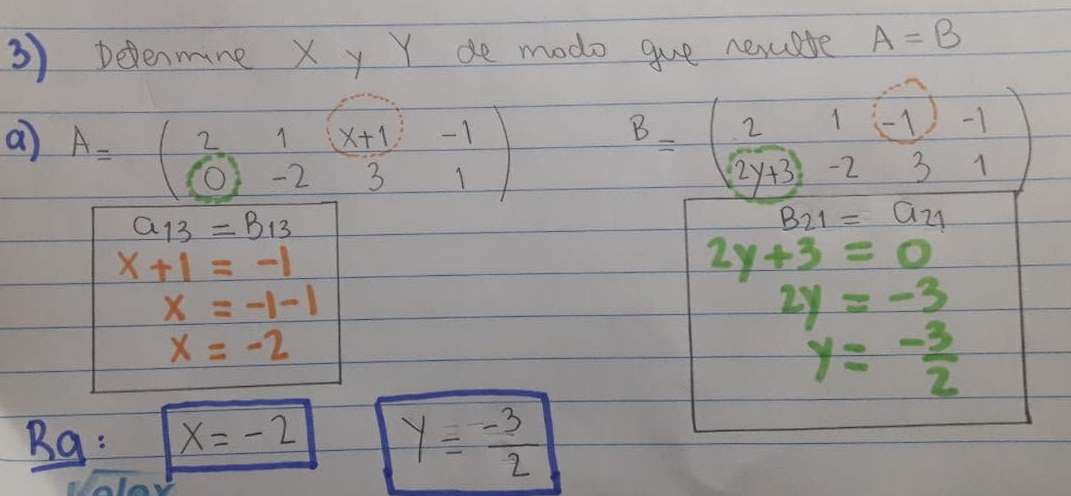 3) Determine X y Y de modo que resulte A = B
a) A = ( 2 1 x+1 -1 ) B = ( 2 1 -1 -1 )
( 0 -2 3 1 ) ( 2y+3 -2 3 1 )
a13 = B13
x+1 = -1
x = -1-1
x = -2
B21 = a21
2y+3 = 0
2y = -3
y = -3/2
Ra: X = -2 Y = -3/2